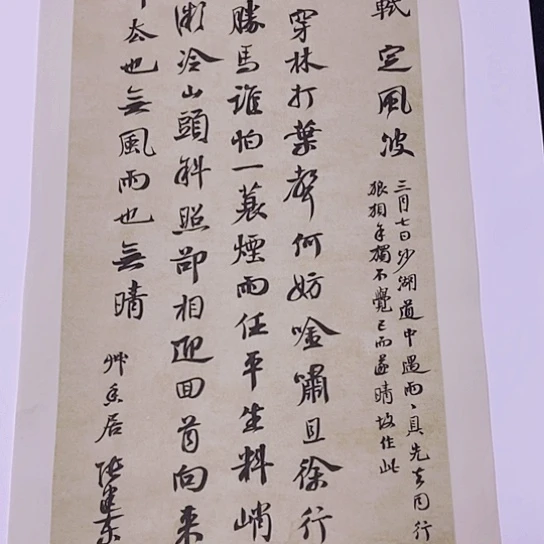 軾定風波
三月七日沙湖道中遇雨、具先去同行
狼狽余獨不覺已而遂晴故作此
穿林打葉聲何妨唫嘯且徐行
勝馬誰怕一蓑煙雨任平生料峭
微冷山頭斜照卻相迎回首向來
去也無風雨也無晴
居 張建東